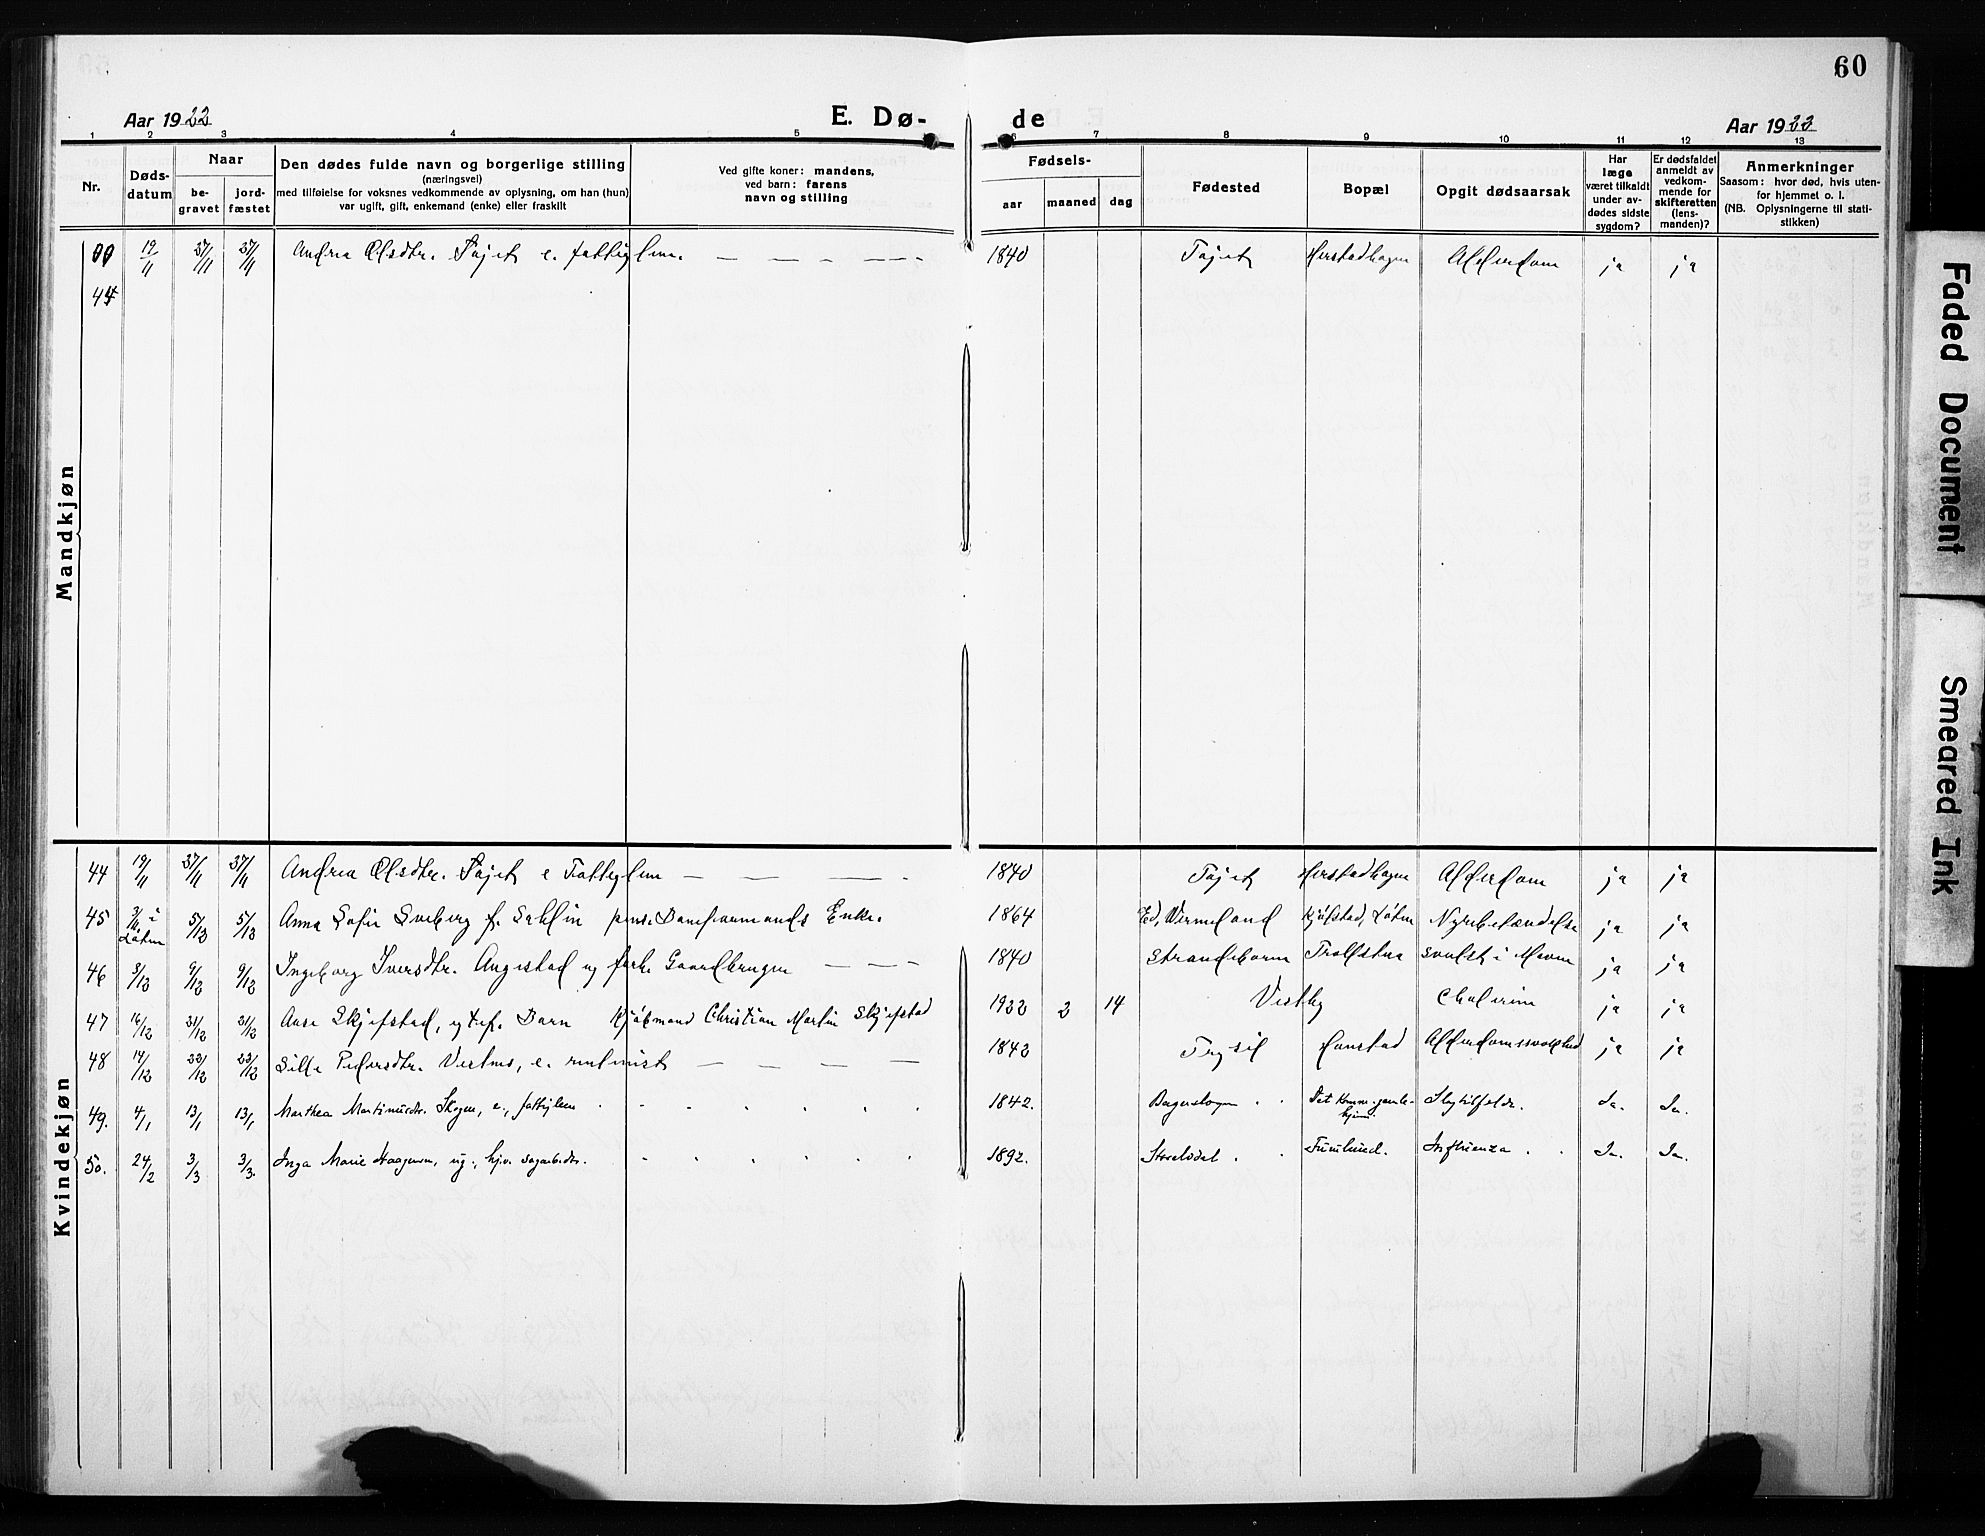 60
Aar 1922
E. Dø-
de
Aar 1922
1 2 3 4 5 6 7 8 9 10 11 12 13
Nr.
Døds-
datum
Naar
be-
gravet
jord-
fæstet
Den dødes fulde navn og borgerlige stilling
(næringsvei)
med tilføielse for voksnes vedkommende av oplysning, om han (hun)
var ugift, gift, enkemand (enke) eller fraskilt
Ved gifte koner: mandens,
ved barn: farens
navn og stilling
Fødsels-
aar
maaned
dag
Fødested
Bopæl
Opgit dødsaarsak
Har
læge
været tilkaldt
under av-
dødes sidste
sygdom?
Er dødsfaldet
anmeldt av
vedkom-
mende for
skifteretten
(lens-
manden)?
Anmerkninger
Saasom: hvor død, hvis uten-
for hjemmet o. l.
(NB. Oplysningerne til stati-
stikken)
Mandkjøn
19/11 27/11 27/11 Andrea Olsdtr. Tøjet e. fattiglem. — — — — 1840 Tøjet Herstadhagen Alderdom ja ja
44
Kvindekjøn
44 19/11 27/11 27/11 Andrea Olsdtr. Tøjet e Fattiglem — — — 1840 Tøjet Herstadhagen Alderdom ja ja
45 i Løten 5/12 5/12 Anna Sofie Sveberg f. Sahlin pens. Baneformands Enke. 1864 Ed, Vermeland Kjøfstad, Løten Nyrebetændelse ja ja
46 3/12 9/12 9/12 Ingeborg Iversdtr. Angestad ug forh. Gaardbrugen — — — 1840 Strandeborn Trollstua svulst i Maven ja ja
47 16/12 21/12 21/12 Aase Skjefstad, egtef. Barn Kjøbmand Christian Martin Skjefstad 1922 2 14 Vestby Cholerine ja ja
48 14/12 22/12 22/12 Sille Pedersdtr. Vestmo, e. rentenist — — — — 1843 Trysil Hanstad Alderdomssvakhed ja ja
49. 4/1 13/1 13/1 Marthea Martinusdtr. Skogen, e., fattiglem 1842. Bergeskogen Det Komm. gamle-
hjem. Slagtilfelde. Ja. Ja.
50. 24/2 3/3 3/3. Inga Marie Haagensen, ug., hjv. sagarbeidr. 1892. Storelvdal Furulund. Influenza Ja. Ja.
Faded Document
Smeared Ink